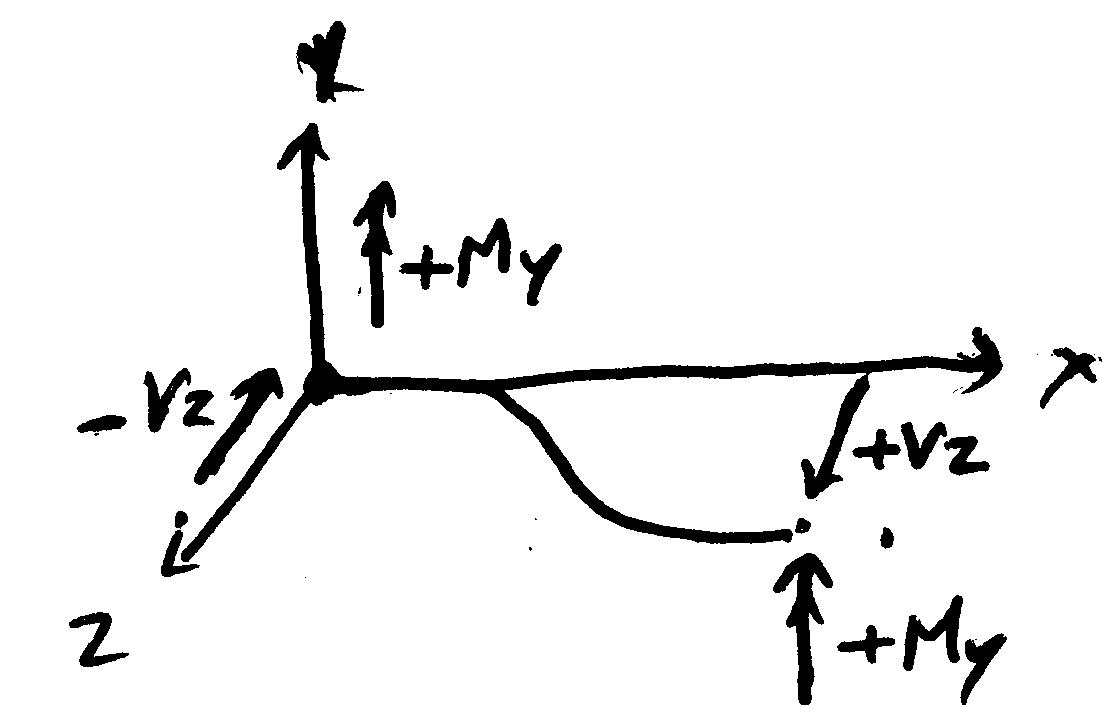 Y
+My
x
-Vz
+Vz
z
+My